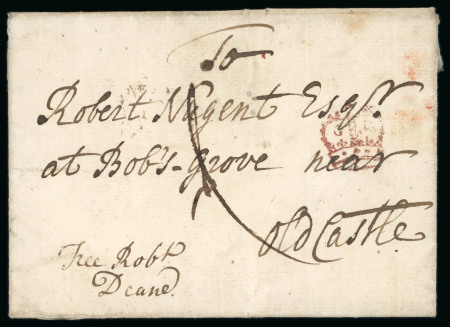 To
Robert Nugent Esqr.
at Bob's-Grove near
Old Castle
Free Robt.
Deane